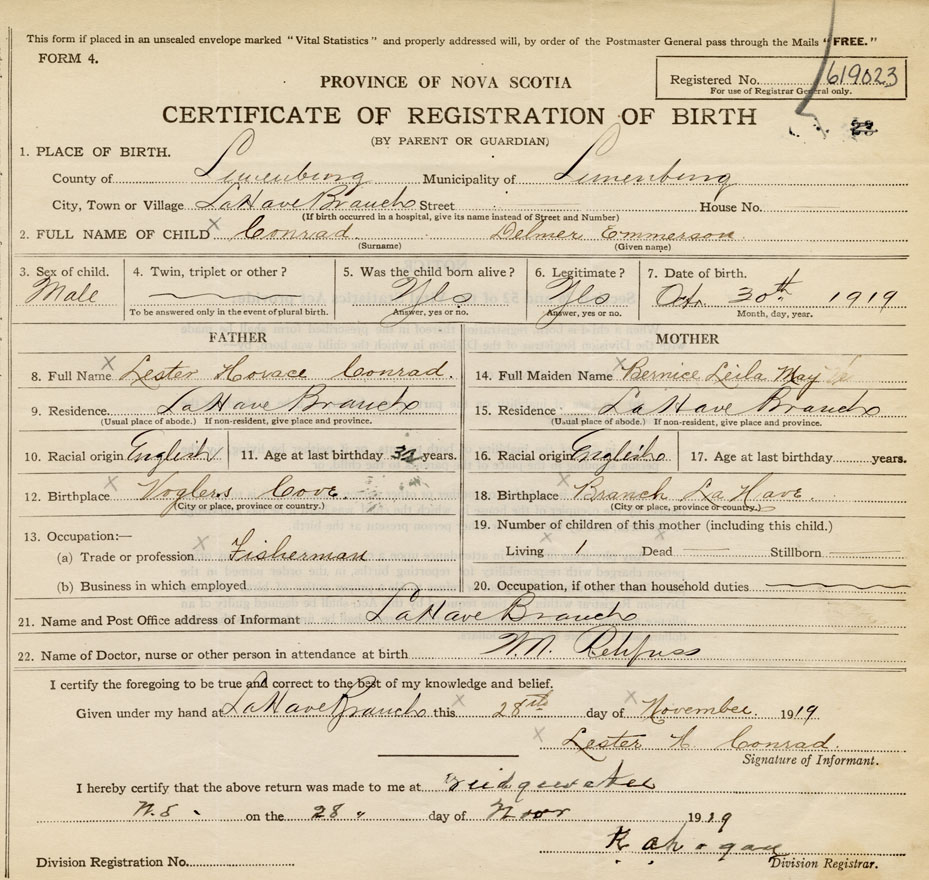 This form if placed in an unsealed envelope marked "Vital Statistics" and properly addressed will, by order of the Postmaster General pass through the Mails "FREE."
FORM 4.
Registered No. 619023
For use of Registrar General only.
PROVINCE OF NOVA SCOTIA
CERTIFICATE OF REGISTRATION OF BIRTH
(BY PARENT OR GUARDIAN)
1. PLACE OF BIRTH.
County of Lunenburg Municipality of Lunenburg
City, Town or Village LaHave Branch Street House No.
(If birth occurred in a hospital, give its name instead of Street and Number)
2. FULL NAME OF CHILD Conrad Delmer Emmerson
(Surname) (Given name)
3. Sex of child. 4. Twin, triplet or other? 5. Was the child born alive? 6. Legitimate? 7. Date of birth.
Male Yes Yes Oct. 30th 1919
To be answered only in the event of plural birth. Answer, yes or no. Answer, yes or no. Month, day, year.
FATHER MOTHER
8. Full Name Lester Horace Conrad. 14. Full Maiden Name Bernice Leila May
9. Residence LaHave Branch 15. Residence LaHave Branch
(Usual place of abode.) If non-resident, give place and province. (Usual place of abode.) If non-resident, give place and province.
10. Racial origin English 11. Age at last birthday years. 16. Racial origin English 17. Age at last birthday years.
12. Birthplace Voglers Cove. 18. Birthplace Branch LaHave.
(City or place, province or country.) (City or place, province or country.)
13. Occupation:— 19. Number of children of this mother (including this child.)
(a) Trade or profession Fisherman Living 1 Dead Stillborn
(b) Business in which employed 20. Occupation, if other than household duties
21. Name and Post Office address of Informant LaHave Branch
22. Name of Doctor, nurse or other person in attendance at birth W.N. Rehfuss
I certify the foregoing to be true and correct to the best of my knowledge and belief.
Given under my hand at LaHave Branch this 28th day of November. 1919
Lester H Conrad.
Signature of Informant.
I hereby certify that the above return was made to me at Bridgewater
N.S. on the 28 " day of Novr 1919
Division Registration No. Division Registrar.